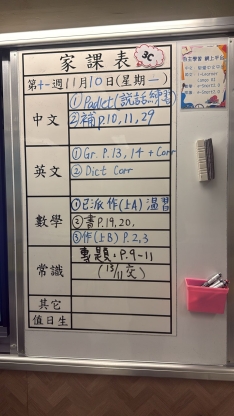 家課表 3C
第十一週11月10日(星期一)
中文
①Padlet(說話練習)
②補p.10,11,29
英文
①Gr. P.13, 14 + Corr
②Dict Corr
數學
①已派作(上A)溫習
②書P.19,20,
③作(上B) P.2,3
常識
專題:P.9-11
(13/11交)
其它
值日生
自主學習 網上平台